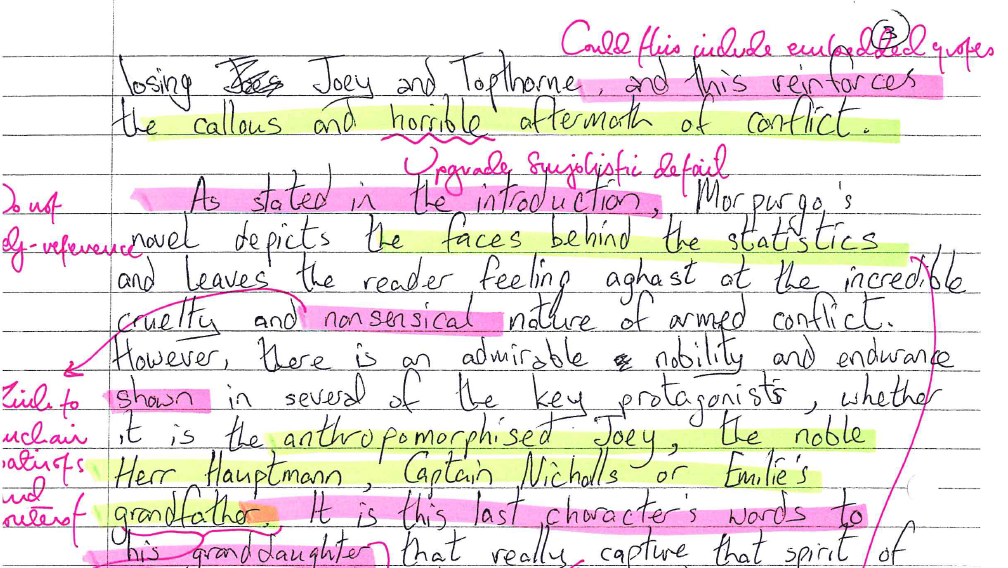 Could this include embedded quotes
3
losing Joey and Topthorne, and this reinforces
the callous and horrible aftermath of conflict.
Upgrade stylistic detail
As stated in the introduction, Morpurgo's
Do not
novel depicts the faces behind the statistics
-reference
and leaves the reader feeling aghast at the incredible
cruelty and nonsensical nature of armed conflict.
However, there is an admirable nobility and endurance
shown in several of the key protagonists, whether
to
it is the anthropomorphised Joey, the noble
Herr Hauptmann, Captain Nicholls or Emilie's
grandfather. It is this last character's words to
his granddaughter that really capture that spirit of